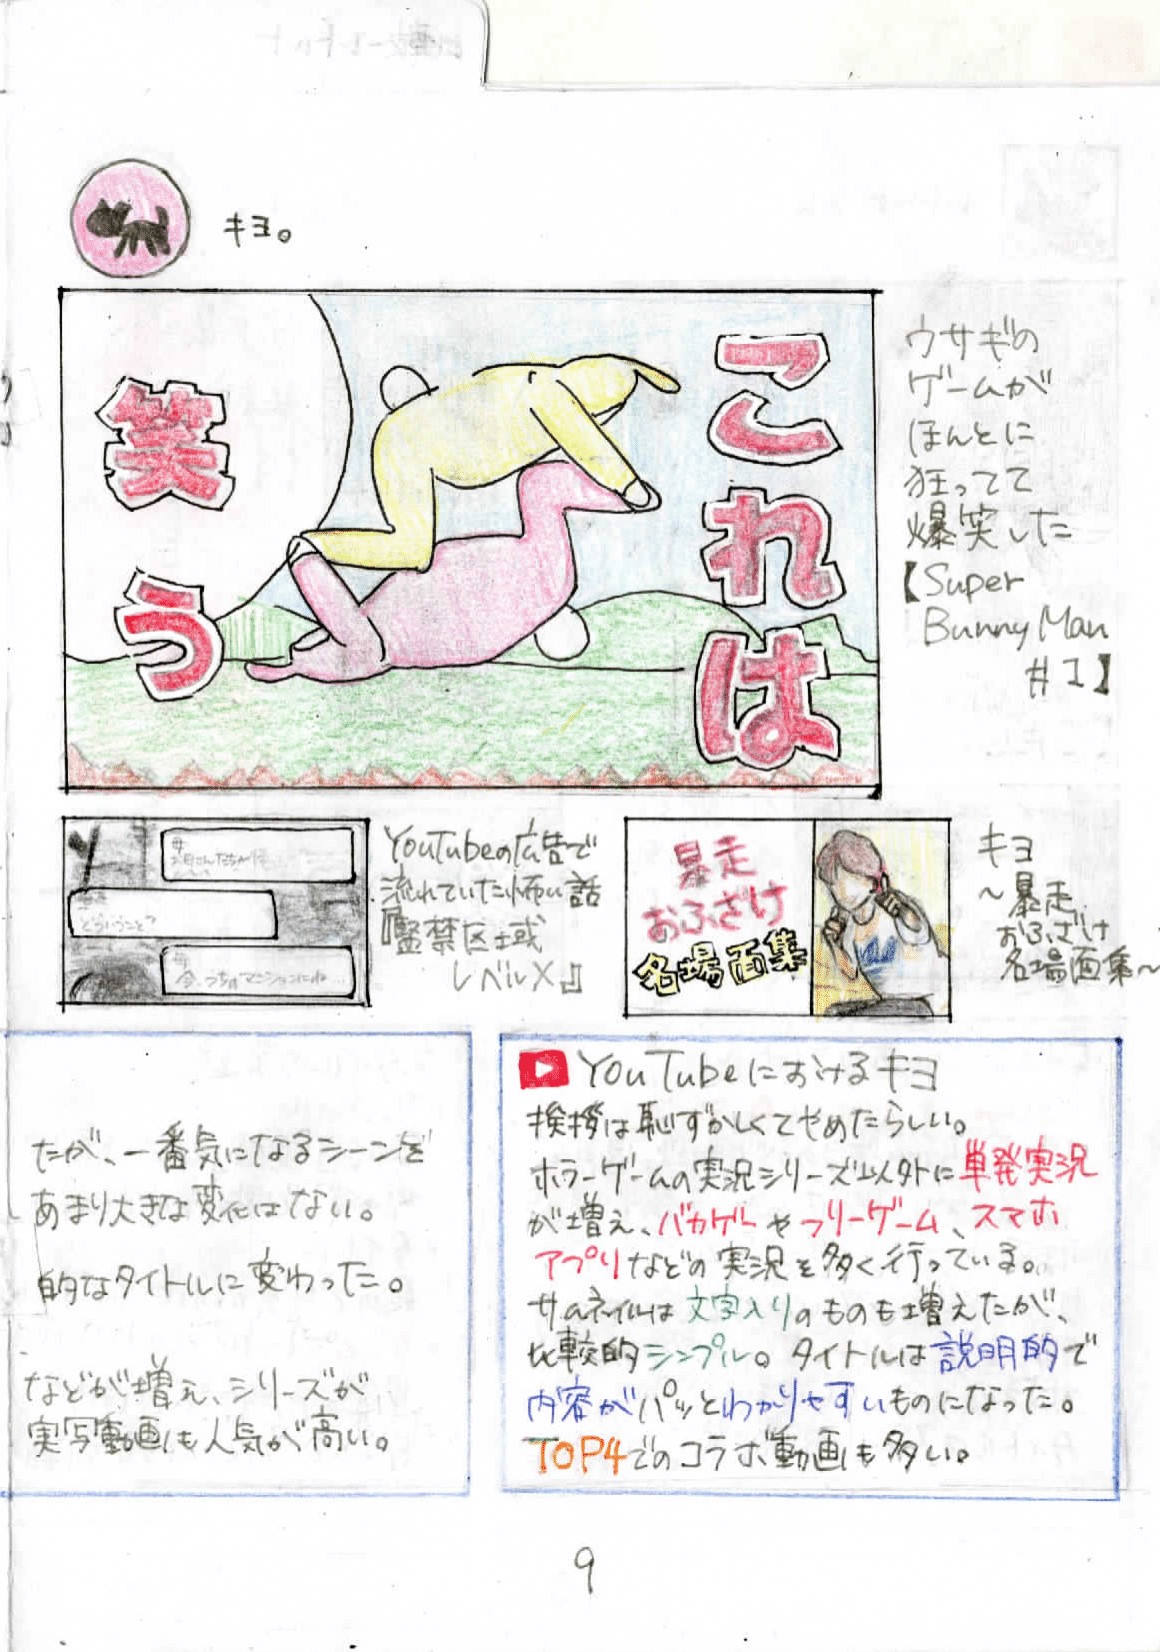 キヨ。
これは
笑う
ウサギの
ゲームが
ほんとに
狂ってて
爆笑した
【Super
Bunny Man
#1】
母
どういうこと?
母
今、うちのマンションにね…
YouTubeの広告で
流れていた怖い話
『監禁区域
レベルX』
暴走
おふざけ
名場面集
キヨ
~暴走
おふざけ
名場面集~
たが、一番気になるシーンを
あまり大きな変化はない。
的なタイトルに変わった。
などが増え、シリーズが
実写動画も人気が高い。
YouTubeにおけるキヨ
挨拶は恥ずかしくてやめたらしい。
ホラーゲームの実況シリーズ以外に単発実況
が増え、バカゲーやフリーゲーム、スマホ
アプリなどの実況を多く行っている。
サムネイルは文字入りのものも増えたが、
比較的シンプル。タイトルは説明的で
内容がパッとわかりやすいものになった。
TOP4でのコラボ動画も多い。
9